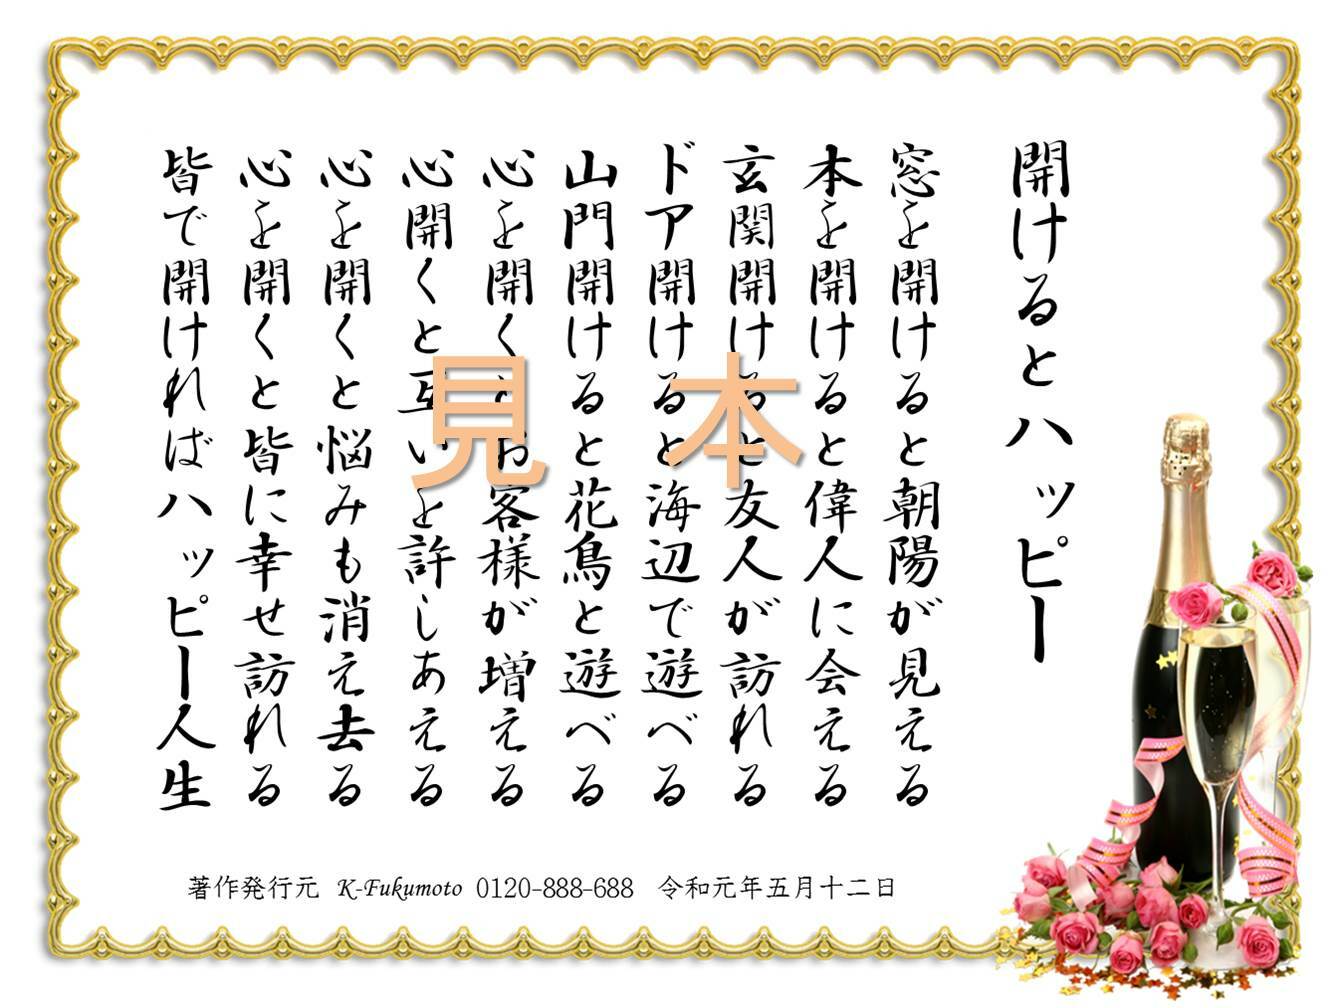 開けるとハッピー
窓を開けると朝陽が見える
本を開けると偉人に会える
玄関開けると友人が訪れる
ドア開けると海辺で遊べる
山門開けると花鳥と遊べる
心を開くとお客様が増える
心開くと互いを許しあえる
心を開くと悩みも消え去る
心を開くと皆に幸せ訪れる
皆で開ければハッピー人生
見本
著作発行元 K-Fukumoto 0120-888-688 令和元年五月十二日